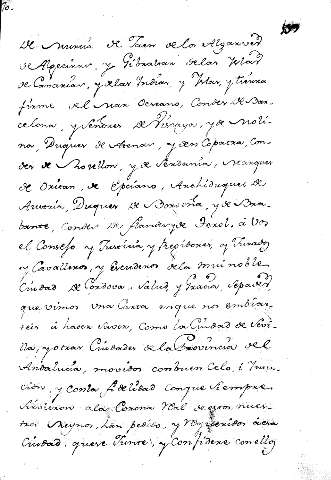 de Murcia de Jaen de los Algarves
de Algecira, y Gibraltar de las Yslas
de Canarias, y de las Indias, y Yslas, y tierra
firme del Mar Occeano, Condes de Bar-
celona, y Señores de Vizcaya, y de Moli-
na, Duques de Atenas, y de Neopatria, Con-
des de Rosellon, y de Serdania, Marques
de Oristan, de Gociano, Archiduques de
Austria, Duques de Borgoña, y de Bra-
bante, Condes de Flandes y de Tirol, à Vos
el Consejo y Justicia, y Regidores, y Jurados
y Cavalleros, y Escuderos de la mui noble
Ciudad de Cordova, Salud y Gracia, Sepades,
que vimos una Carta en que nos embias-
teis à hacer saver, como la Ciudad de Sevi-
lla, y otras Ciudades de la Provincia del
Andalucia, movidos con buen Celo, è Inten-
cion, y con la fidelidad con que siempre
sirvieron à la Corona Real de estos nues-
tros Reynos, han pedido, y requerido à esa
Ciudad, que se junte, y Confedere con ellos